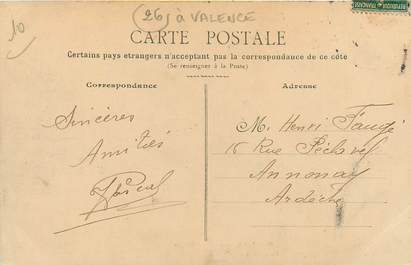 10
(26) à VALENCE
REPUBLIQUE FRANÇAISE
CARTE POSTALE
Certains pays etrangers n'acceptant pas la correspondance de ce côté
(Se renseigner à la Poste)
Correspondance
Adresse
Sincères
Amitiés
M. Henri
Rue Péchevel
Annonay
Ardèche